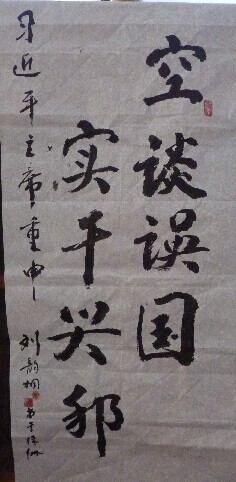 空谈误国
实干兴邦
习近平主席重申
刘韵桐